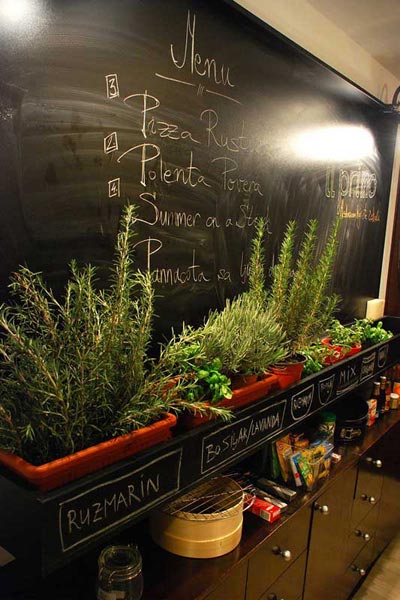 Menu
3 Pizza Rust
2 Polenta Povera
1 Summer on a
Pannacota sa
il primo
RUZMARIN
BOSILJAK/LAVANDA
MIX